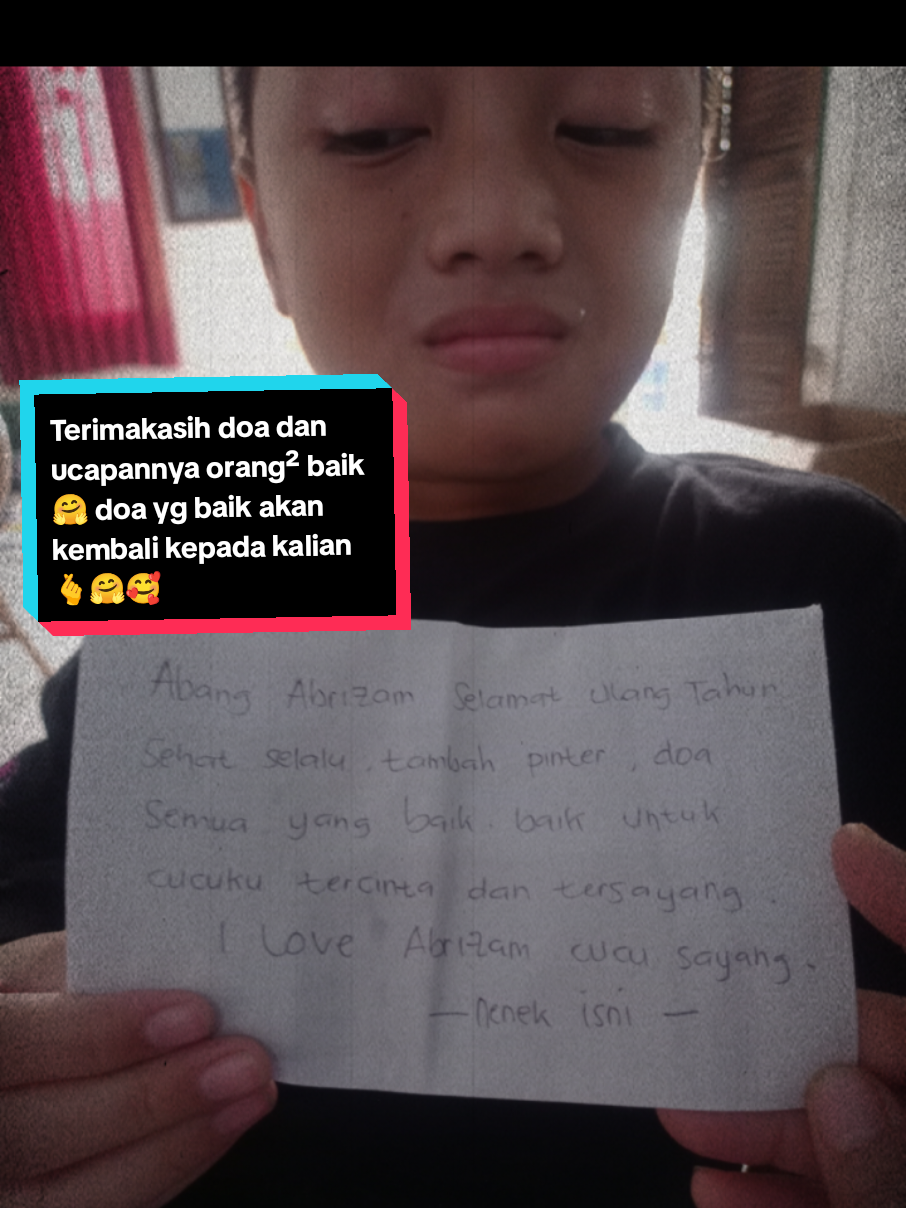 Terimakasih doa dan
ucapannya orang² baik
🤗 doa yg baik akan
kembali kepada kalian
🫰🤗🥰
Abang Abrizam Selamat Ulang Tahun
Sehat selalu, tambah pinter, doa
Semua yang baik. baik untuk
cucuku tercinta dan tersayang.
I Love Abrizam cucu sayang.
— Nenek isni —